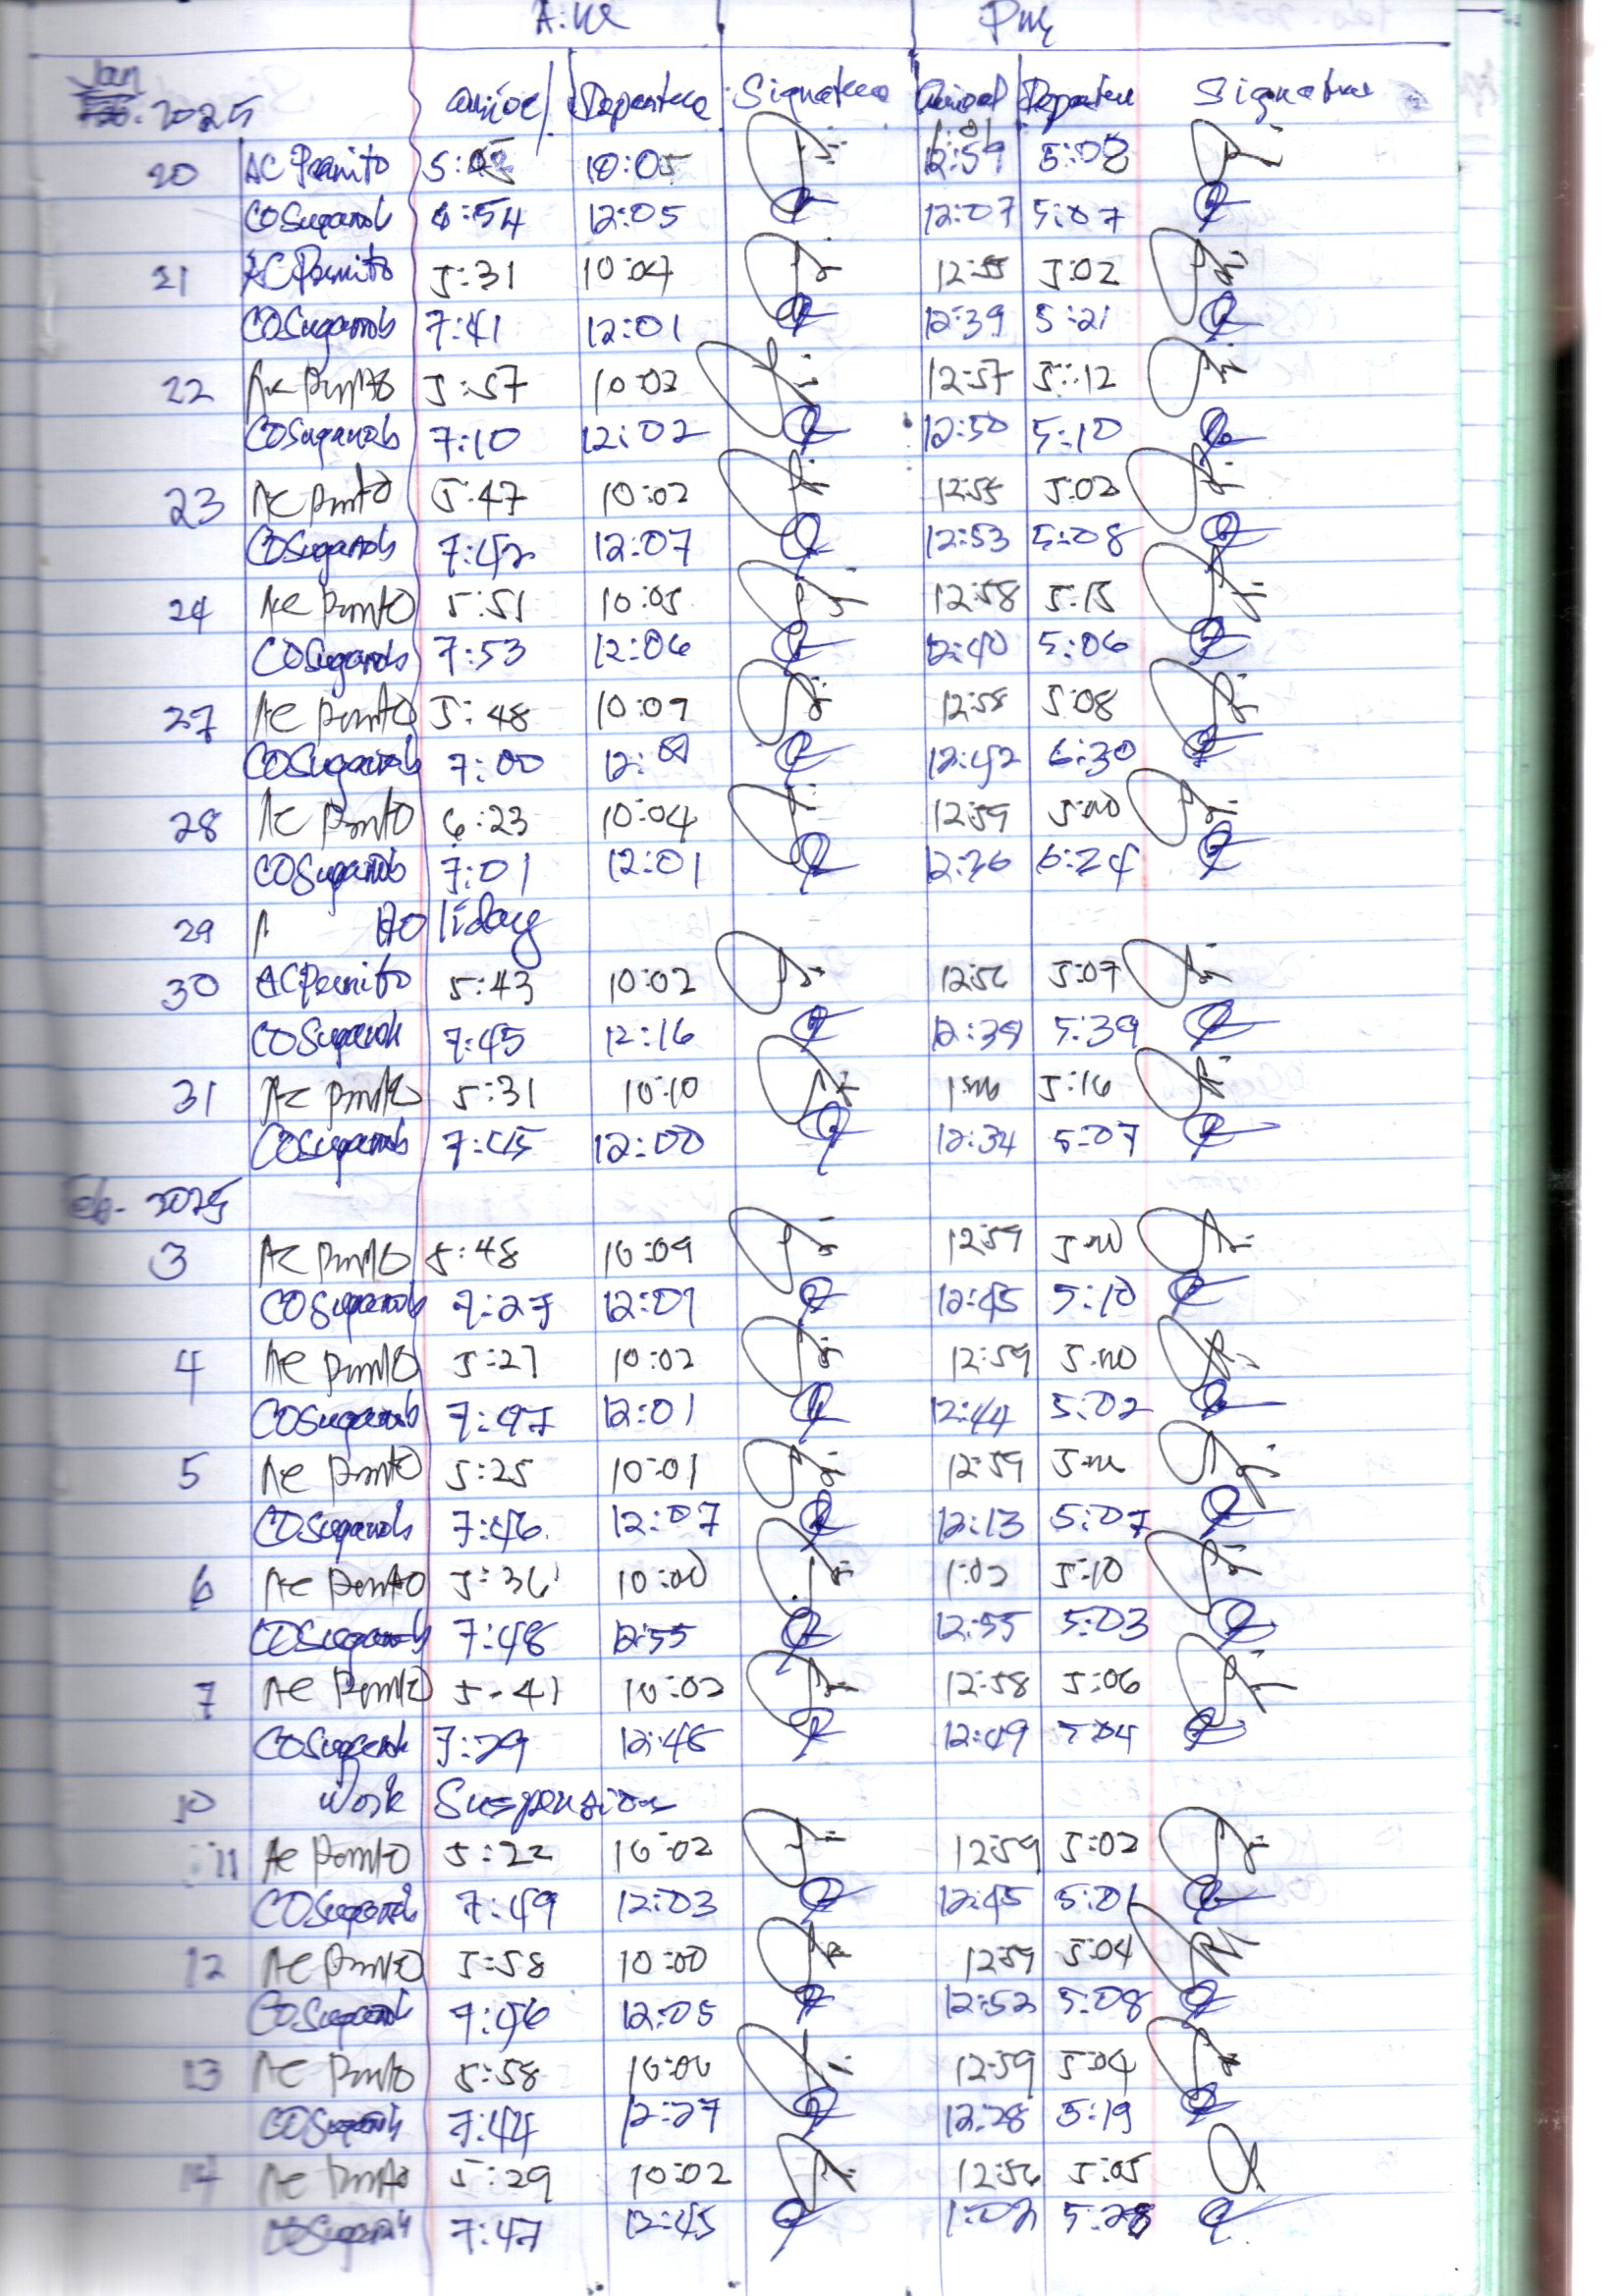 A.M Pm
Jan
Feb. 2025 Arrival Departure Signature Arrival Departure Signature
20 AC Pernito 5:45 10:05 12:59 5:08
COSuganob 6:54 12:05 12:07 5:07
21 AC Pernito 5:31 10:04 12:55 5:02
COSuganob 7:41 12:01 12:39 5:21
22 AC Pernito 5:57 10:02 12:57 5:12
COSuganob 7:10 12:02 12:50 5:10
23 AC Pernito 5:47 10:02 12:55 5:02
COSuganob 7:42 12:07 12:53 5:08
24 AC Pernito 5:51 10:05 12:58 5:15
COSuganob 7:53 12:06 12:40 5:06
27 AC Pernito 5:48 10:09 12:58 5:08
COSuganob 7:00 12: 12:42 6:30
28 AC Pernito 6:23 10:04 12:59 5:00
COSuganob 7:01 12:01 12:26 6:24
29 Holiday
30 AC Pernito 5:43 10:02 12:56 5:07
COSuganob 7:45 12:16 12:39 5:39
31 AC Pernito 5:31 10:10 1:00 5:16
COSuganob 7:45 12:00 12:34 5:07
Feb. 2025
3 AC Pernito 5:48 10:09 12:59 5:00
COSuganob 7:27 12:01 12:45 5:10
4 AC Pernito 5:27 10:02 12:59 5:00
COSuganob 7:47 12:01 12:44 5:02
5 AC Pernito 5:25 10:01 12:59 5:00
COSuganob 7:46 12:07 12:13 5:07
6 AC Pernito 5:36 10:00 1:02 5:10
COSuganob 7:48 12:55 12:55 5:03
7 AC Pernito 5:41 10:02 12:58 5:06
COSuganob 7:29 12:48 12:49 5:04
10 Work Suspension
11 AC Pernito 5:22 10:02 12:59 5:02
COSuganob 7:49 12:03 12:45 5:01
12 AC Pernito 5:58 10:00 12:59 5:04
COSuganob 7:46 12:05 12:52 5:08
13 AC Pernito 5:58 10:00 12:59 5:04
COSuganob 7:44 12:27 12:28 5:19
14 AC Pernito 5:29 10:02 12:56 5:05
COSuganob 7:47 12:45 1:02 5:28